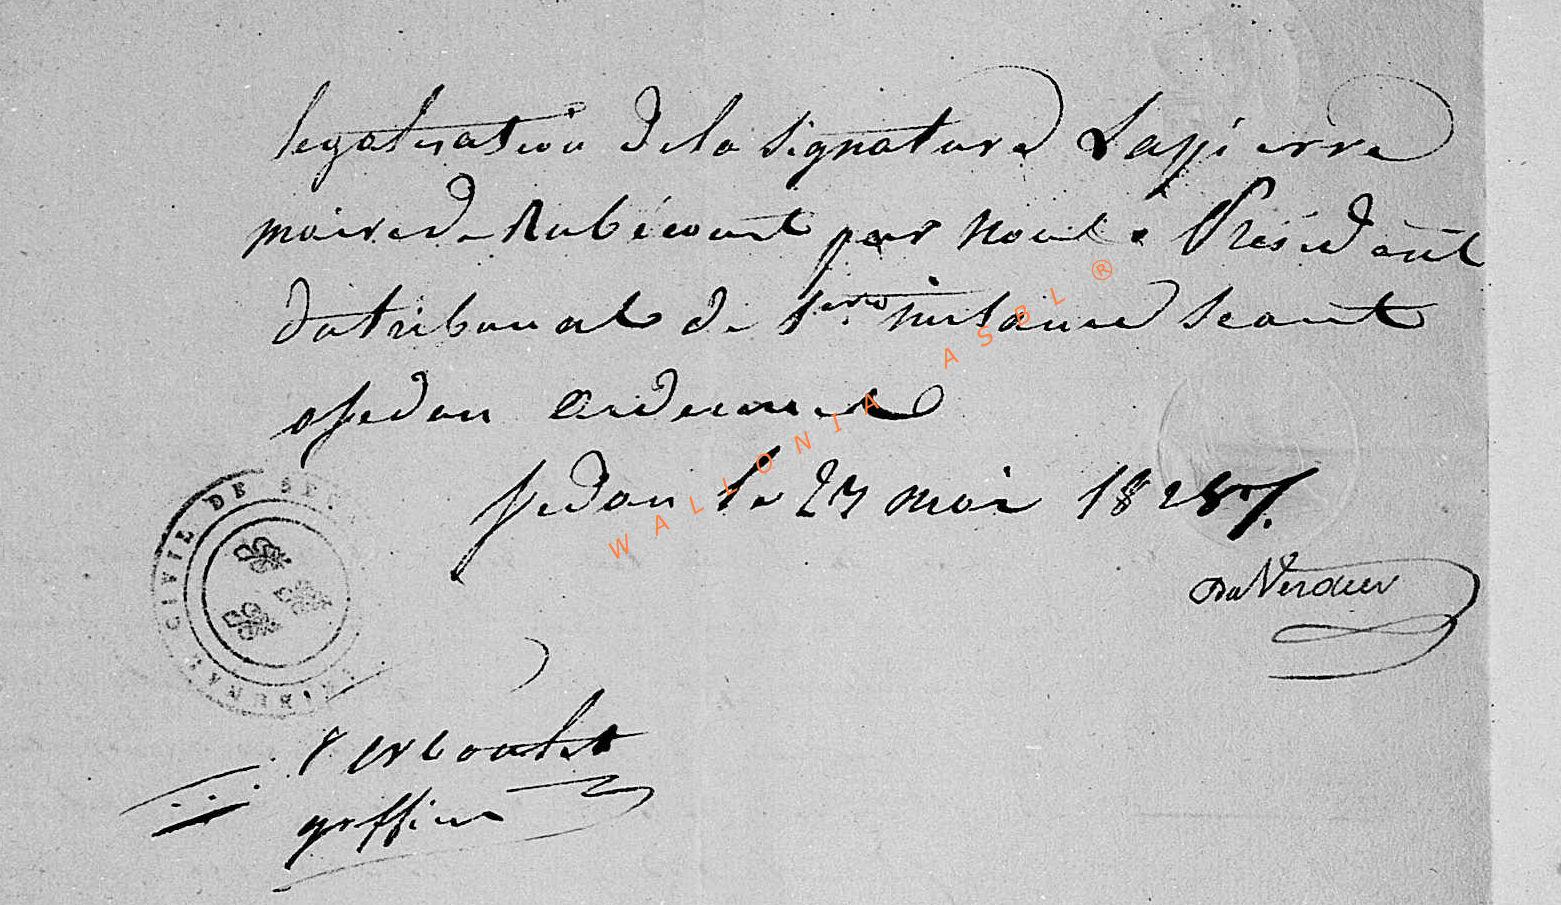 legalisation de la signature Lapierre
maire de Rubécourt par nous Président
du tribunal de 1ere instance seant
a Sedan Ardennes
Sedan le 27 mai 1827.
DuVerdier
TRIBUNAL CIVIL DE SE
greffier
WALLONIA ASBL ®